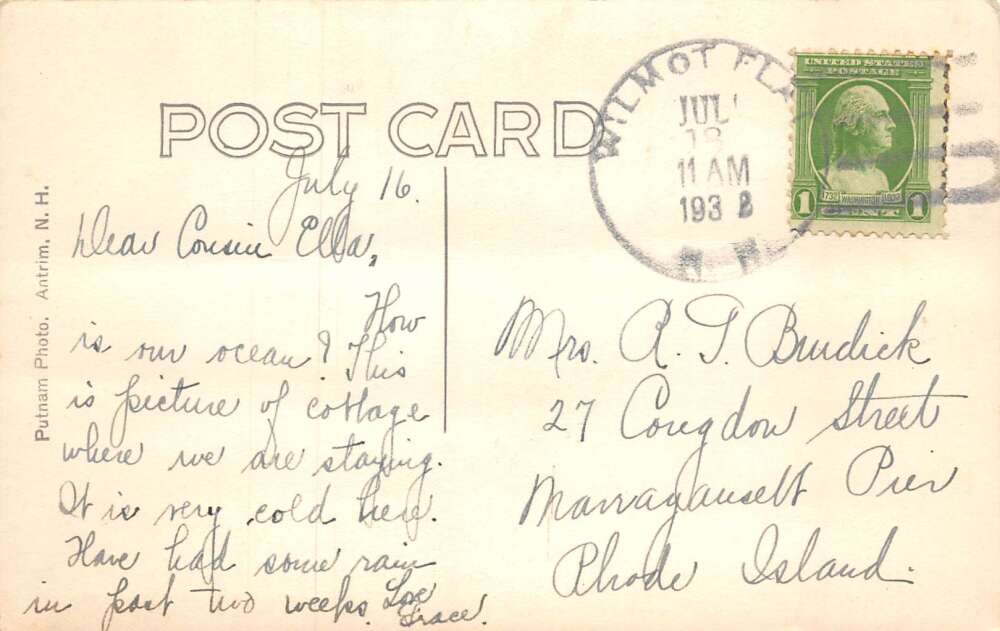 POST CARD
WILMOT FLA
JUL
18
11 AM
1932
N. H.
UNITED STATES
POSTAGE
1732 WASHINGTON 1932
1 CENT 1
Putnam Photo. Antrim, N. H.
July 16.
Dear Cousin Ella,
How
is our ocean? This
is picture of cottage
where we are staying.
It is very cold here.
Have had some rain
in past two weeks.
Love
Grace.
Mrs. R. T. Burdick
27 Congdon Street
Narragansett Pier
Rhode Island.